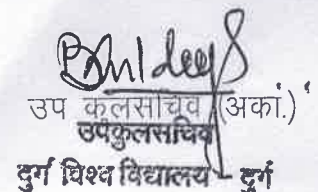 उप कुलसचिव (अकां.)
उपकुलसचिव
दुर्ग विश्व विद्यालय दुर्ग